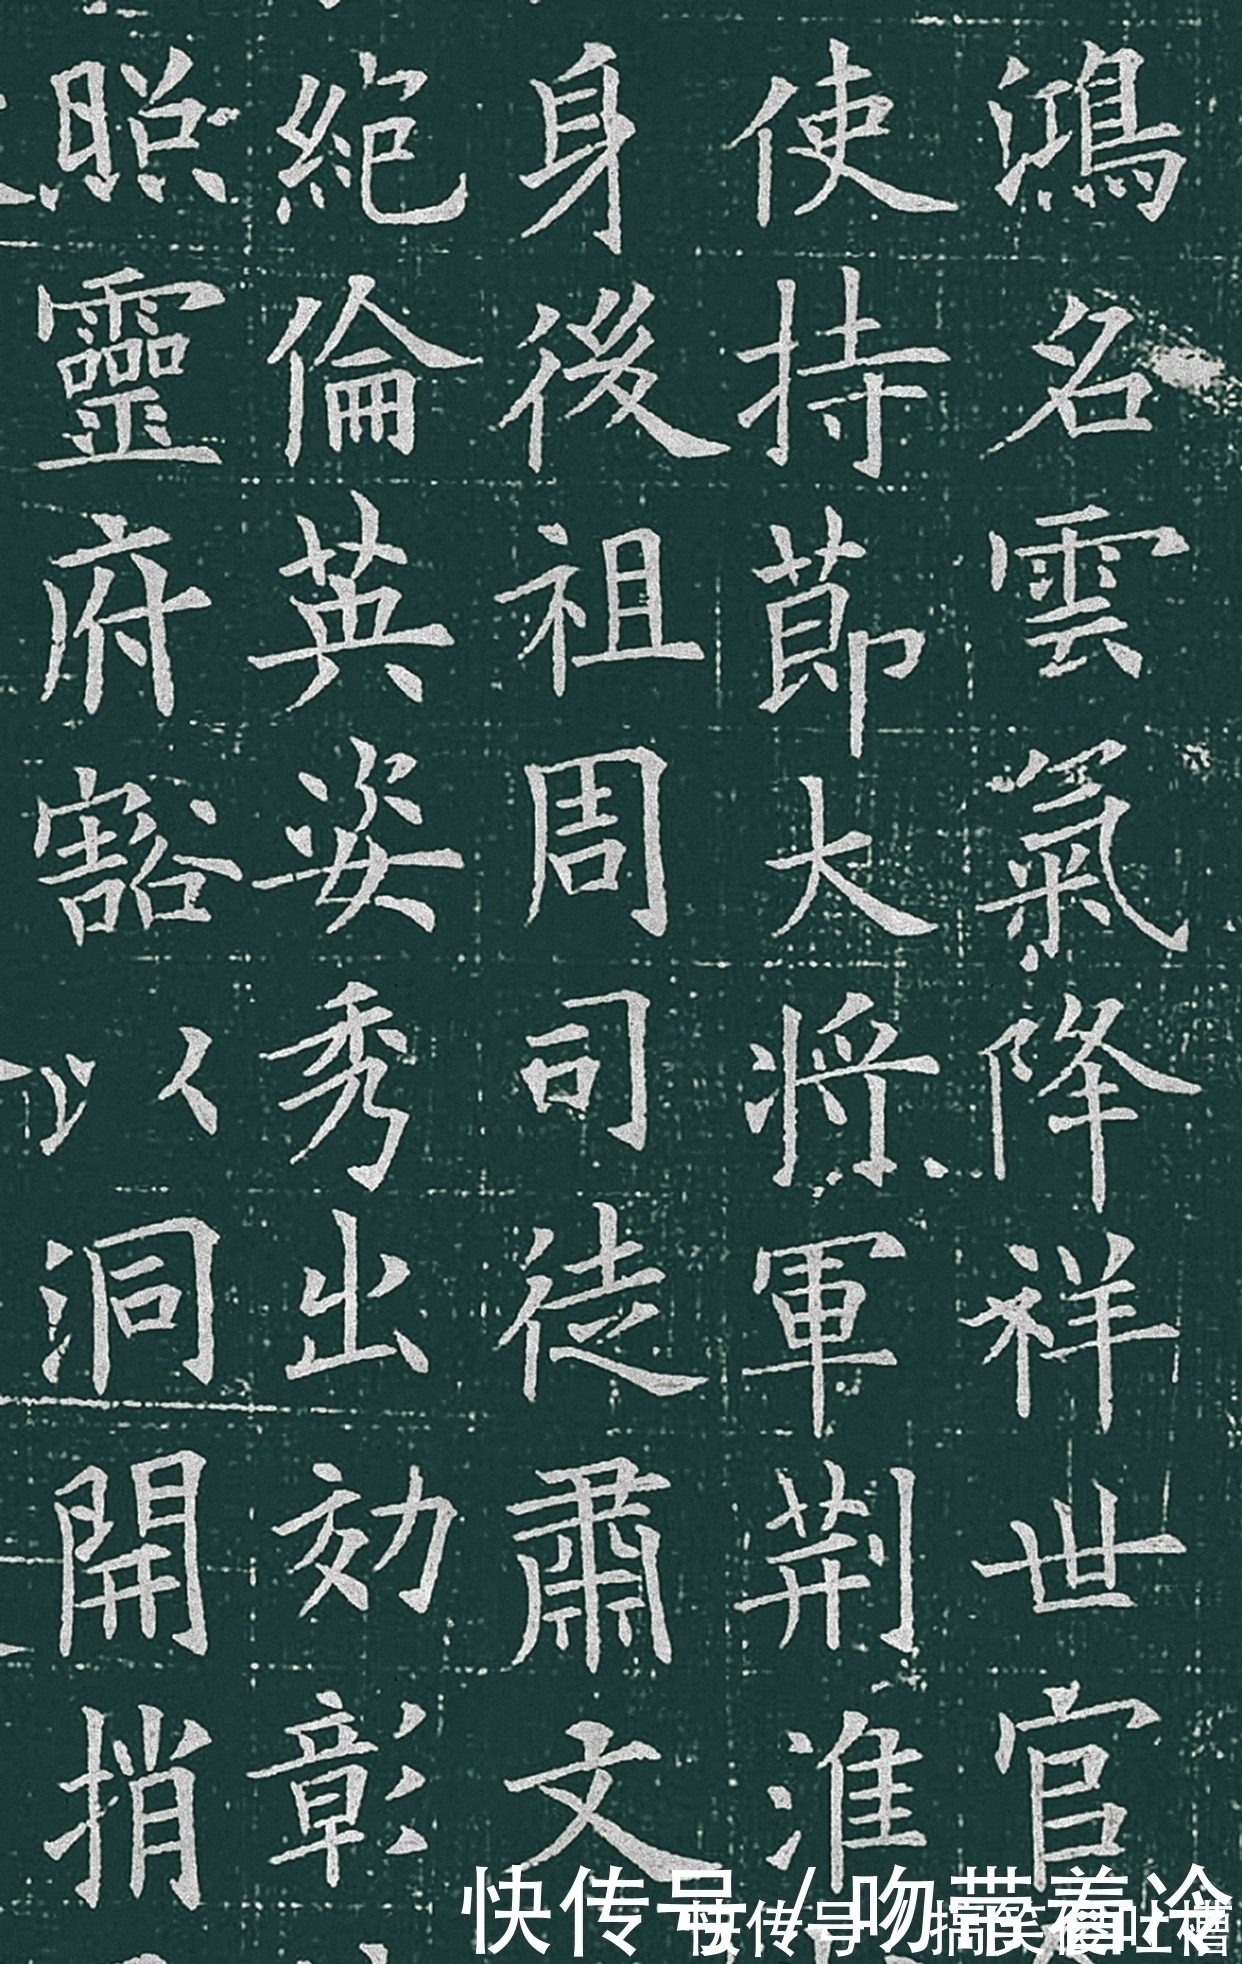 鴻名雲氣降祥世官
使持節大將軍荆淮
身後祖周司徒肅文
絕倫英姿秀出効彰
照靈府豁以洞開捎
快传号/吻带着冷
快传号 搞笑傻吐槽